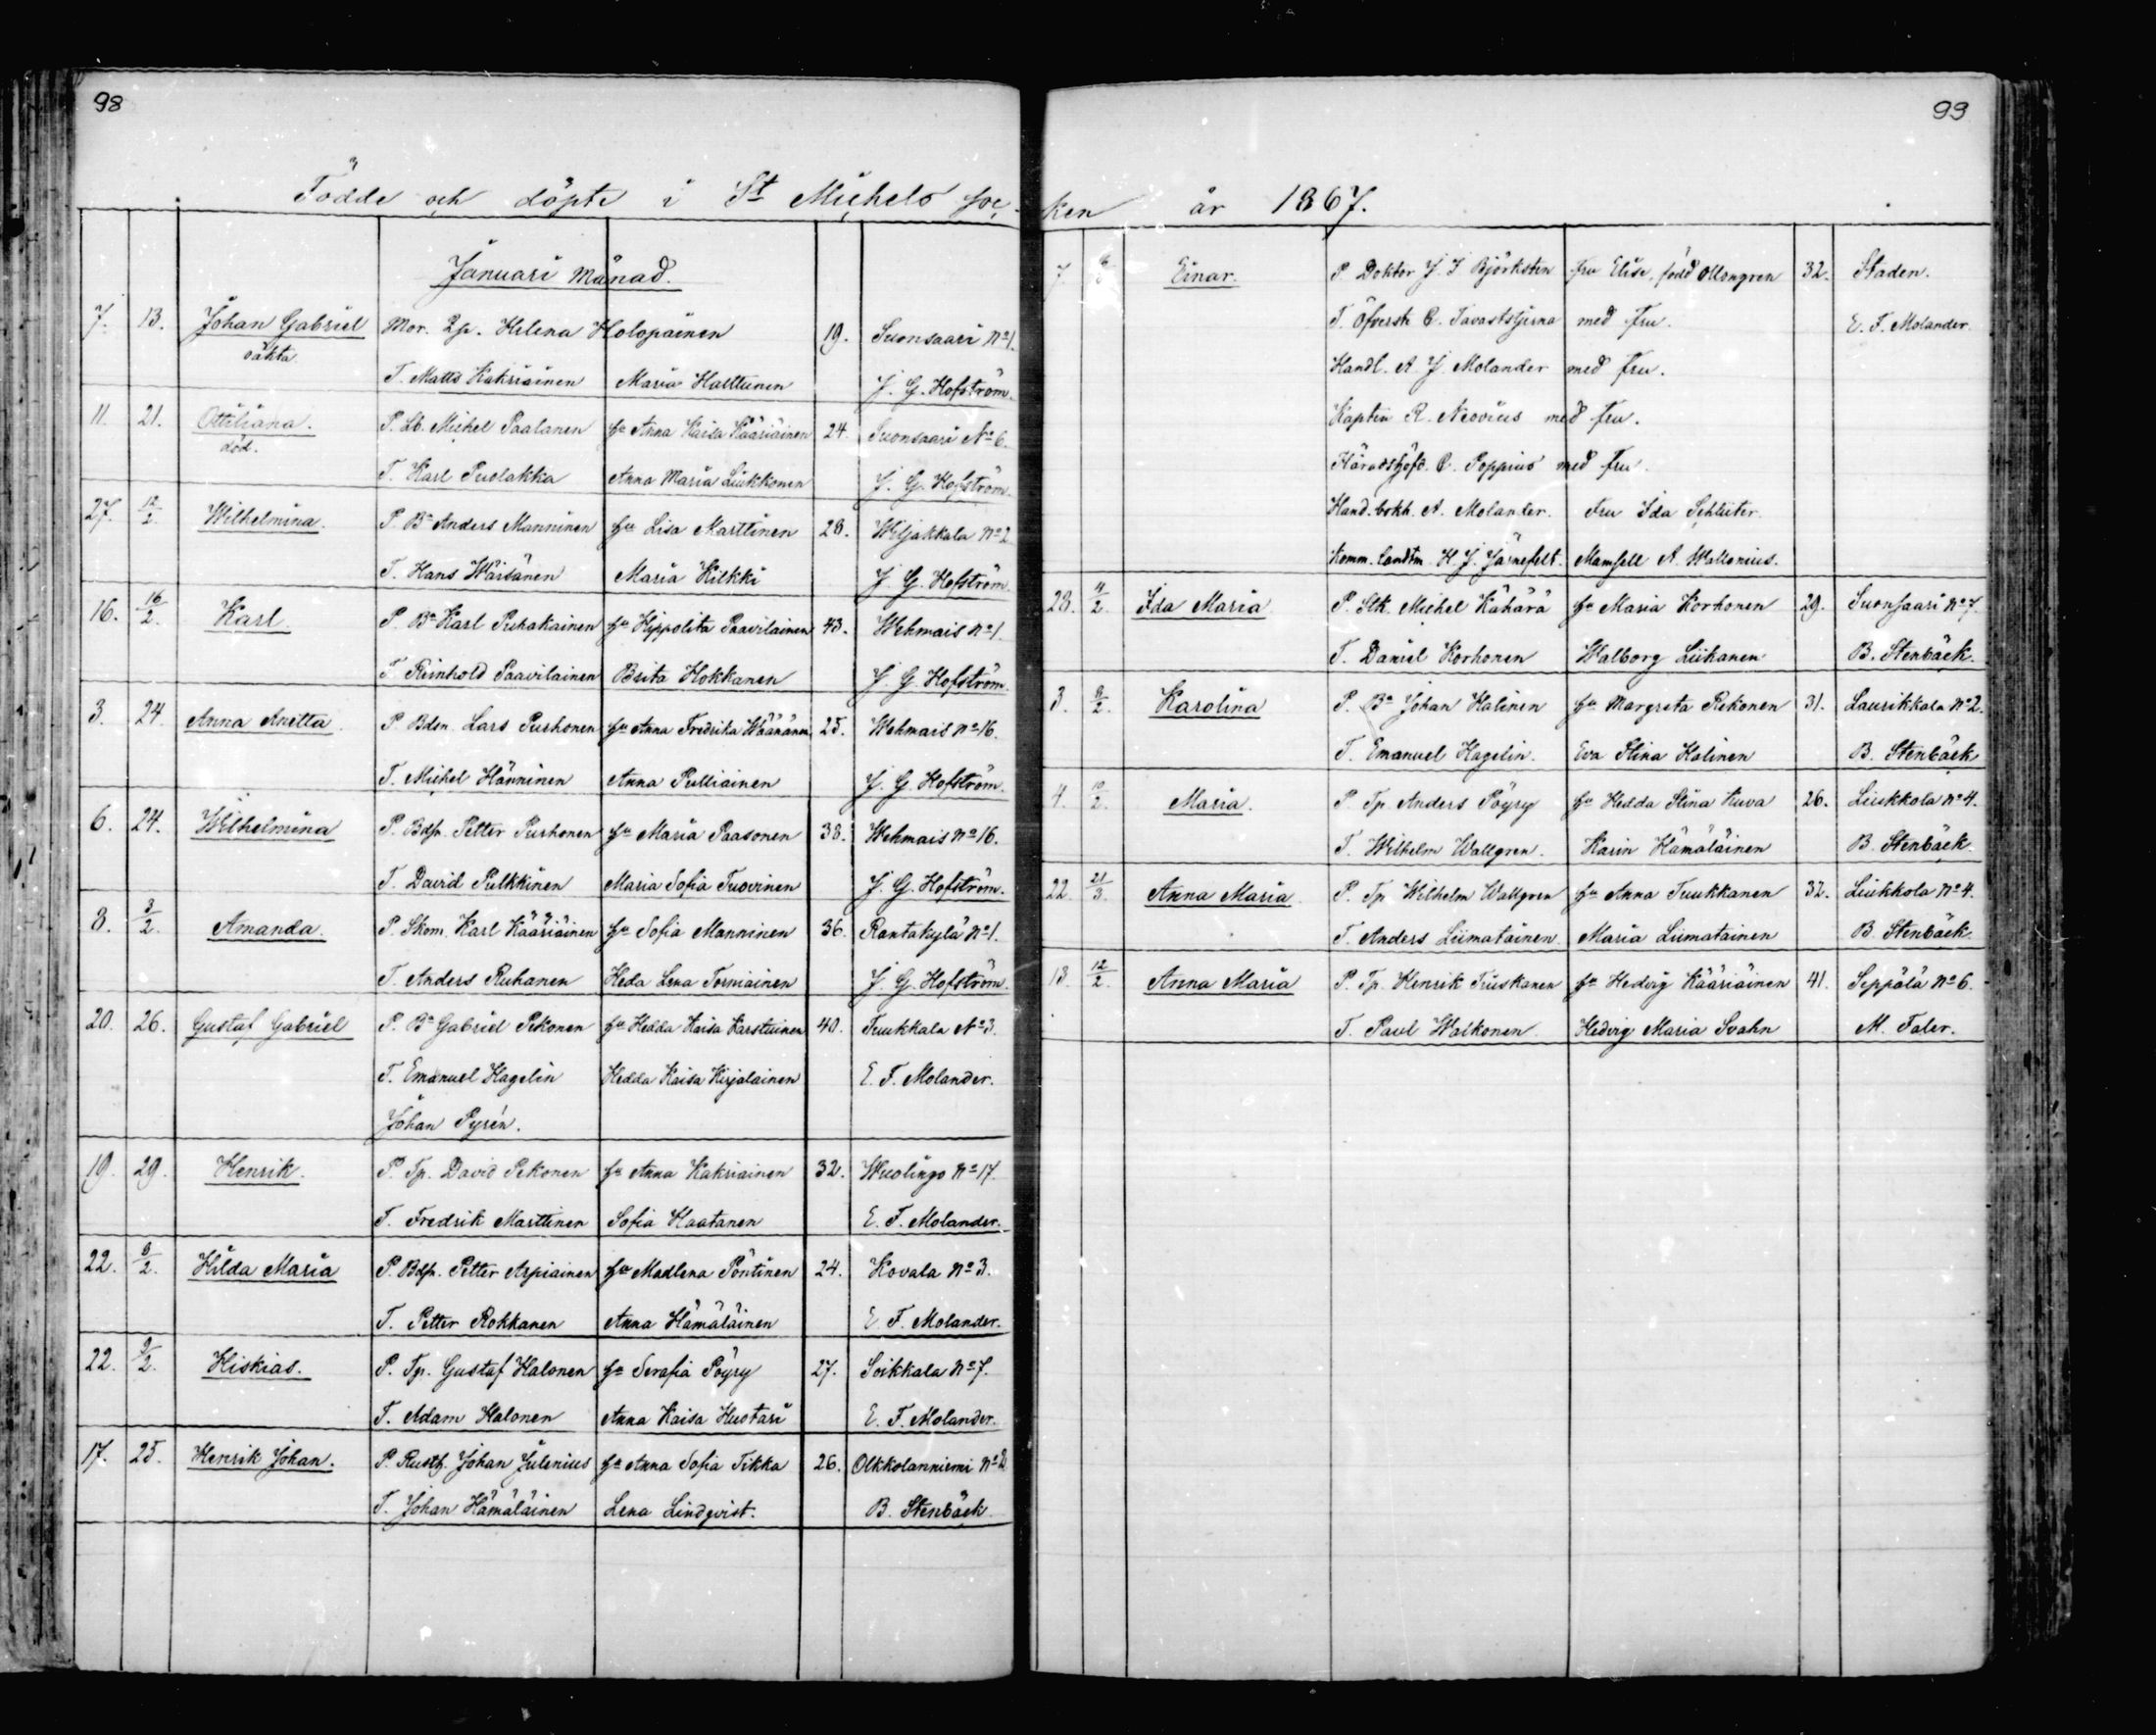 98
Födde och döpte i St Michels soc-
Januari Månad.
7. 13. Johan Gabriel Mor. Helena Holopainen 19. Suonsaari No 1.
oäkta
T. Matts Kakriainen Maria Harttunen J. G. Hofström.
11. 21. Ottiliana. P. Lb. Michel Paalanen hu Anna Kaisa Kääriäinen 24. Suonsaari No 6.
död.
T. Karl Puolakka Anna Maria Liukkonen J. G. Hofström.
27. 12/2. Wilhelmina. P. Bn Anders Manninen hu Lisa Marttinen 28. Wiljakkala No 2
T. Hans Wäisänen Maria Kilkki J. G. Hofström.
16. 16/2. Karl. P. Bn Karl Puhakainen hu Hippolita Paavilainen 43. Wehmais No 1.
T. Reinhold Paavilainen Brita Hokkanen J. G. Hofström.
3. 24. Anna Anetta. P. Bdsn. Lars Purhonen hu Anna Fredrika Wäänänen 25. Wehmais No 16.
T. Michel Hänninen Anna Pulliainen J. G. Hofström.
6. 24. Wilhelmina P. Bdsn. Petter Purhonen hu Maria Paasonen 38. Wehmais No 16.
T. David Pulkkinen Maria Sofia Tuovinen J. G. Hofström.
8. 3/2. Amanda. P. Skom. Karl Kääriäinen hu Sofia Manninen 36. Rantakylä No 1.
T. Anders Ruhanen Heda Lena Torniainen J. G. Hofström.
20. 26. Gustaf Gabriel P. Bn Gabriel Pekonen hu Hedda Kaisa Karstuinen 40. Tuukkala No 3.
T. Emanuel Hagelin Hedda Kaisa Kirjalainen E. F. Molander.
Johan Pyrén.
19. 29. Henrik. P. Tp. David Pekonen hu Anna Kakriainen 32. Wuolingo No 17.
T. Fredrik Marttinen Sofia Haatanen E. F. Molander.
22. 8/2. Hilda Maria P. Bdsn. Petter Arpiainen hu Madlena Pöntinen 24. Kovala No 3.
T. Petter Rokkanen Anna Hämäläinen E. F. Molander.
22. 9/2. Hiskias. P. Tp. Gustaf Halonen hu Serafia Pöyry 27. Soikkala No 7.
T. Adam Halonen Anna Kaisa Hustari E. F. Molander.
17. 25. Henrik Johan. P. Rusth. Johan Julenius hu Anna Sofia Tikka 26. Olkkolanniemi No 2
T. Johan Hämäläinen Lena Lindqvist. B. Stenbäck.
99
ken år 1867.
7. Einar. P. Doktor J. J. Björksten fru Elise, född Ollongren 32. Staden.
T. Öfverste C. Tavaststjerna med Fru. E. F. Molander.
Handl. A. J. Molander med Fru.
Kapten R. Neovius med Fru.
Häradshöfd. C. Poppius med Fru.
Hand. bokh. A. Molander. Fru Ida Schluter.
Komm. Landtm. H. J. Järnefelt. Mamsell A. Wallenius.
28. 4/2. Ida Maria P. Stk. Michel Kähärä hu Maria Korhonen 29. Suonsaari No 7.
T. Daniel Korhonen Walborg Liikanen B. Stenbäck.
3. 8/2. Karolina P. Bn Johan Halinen hu Margreta Rekonen 31. Laurikkala No 2.
T. Emanuel Hagelin. Eva Stina Halinen B. Stenbäck
4. 10/2. Maria. P. Tp. Anders Pöyry hu Hedda Stina Kuva 26. Liukkola No 4.
T. Wilhelm Wallgren. Karin Hämäläinen B. Stenbäck.
22. 21/3. Anna Maria. P. Tp. Wilhelm Wallgren hu Anna Tuukkanen 32. Liukkola No 4.
T. Anders Liimatainen Maria Liimatainen B. Stenbäck.
13. 12/2. Anna Maria P. Tp. Henrik Truskanen hu Hedvig Kääriäinen 41. Seppälä No 6.
T. Paul Walkonen Hedvig Maria Svahn M. Taler.